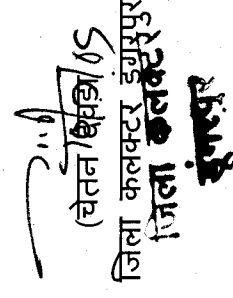 (चेतन देवड़ा)
जिला कलक्टर डूंगरपुर
जिला कलक्टर
डूंगरपुर